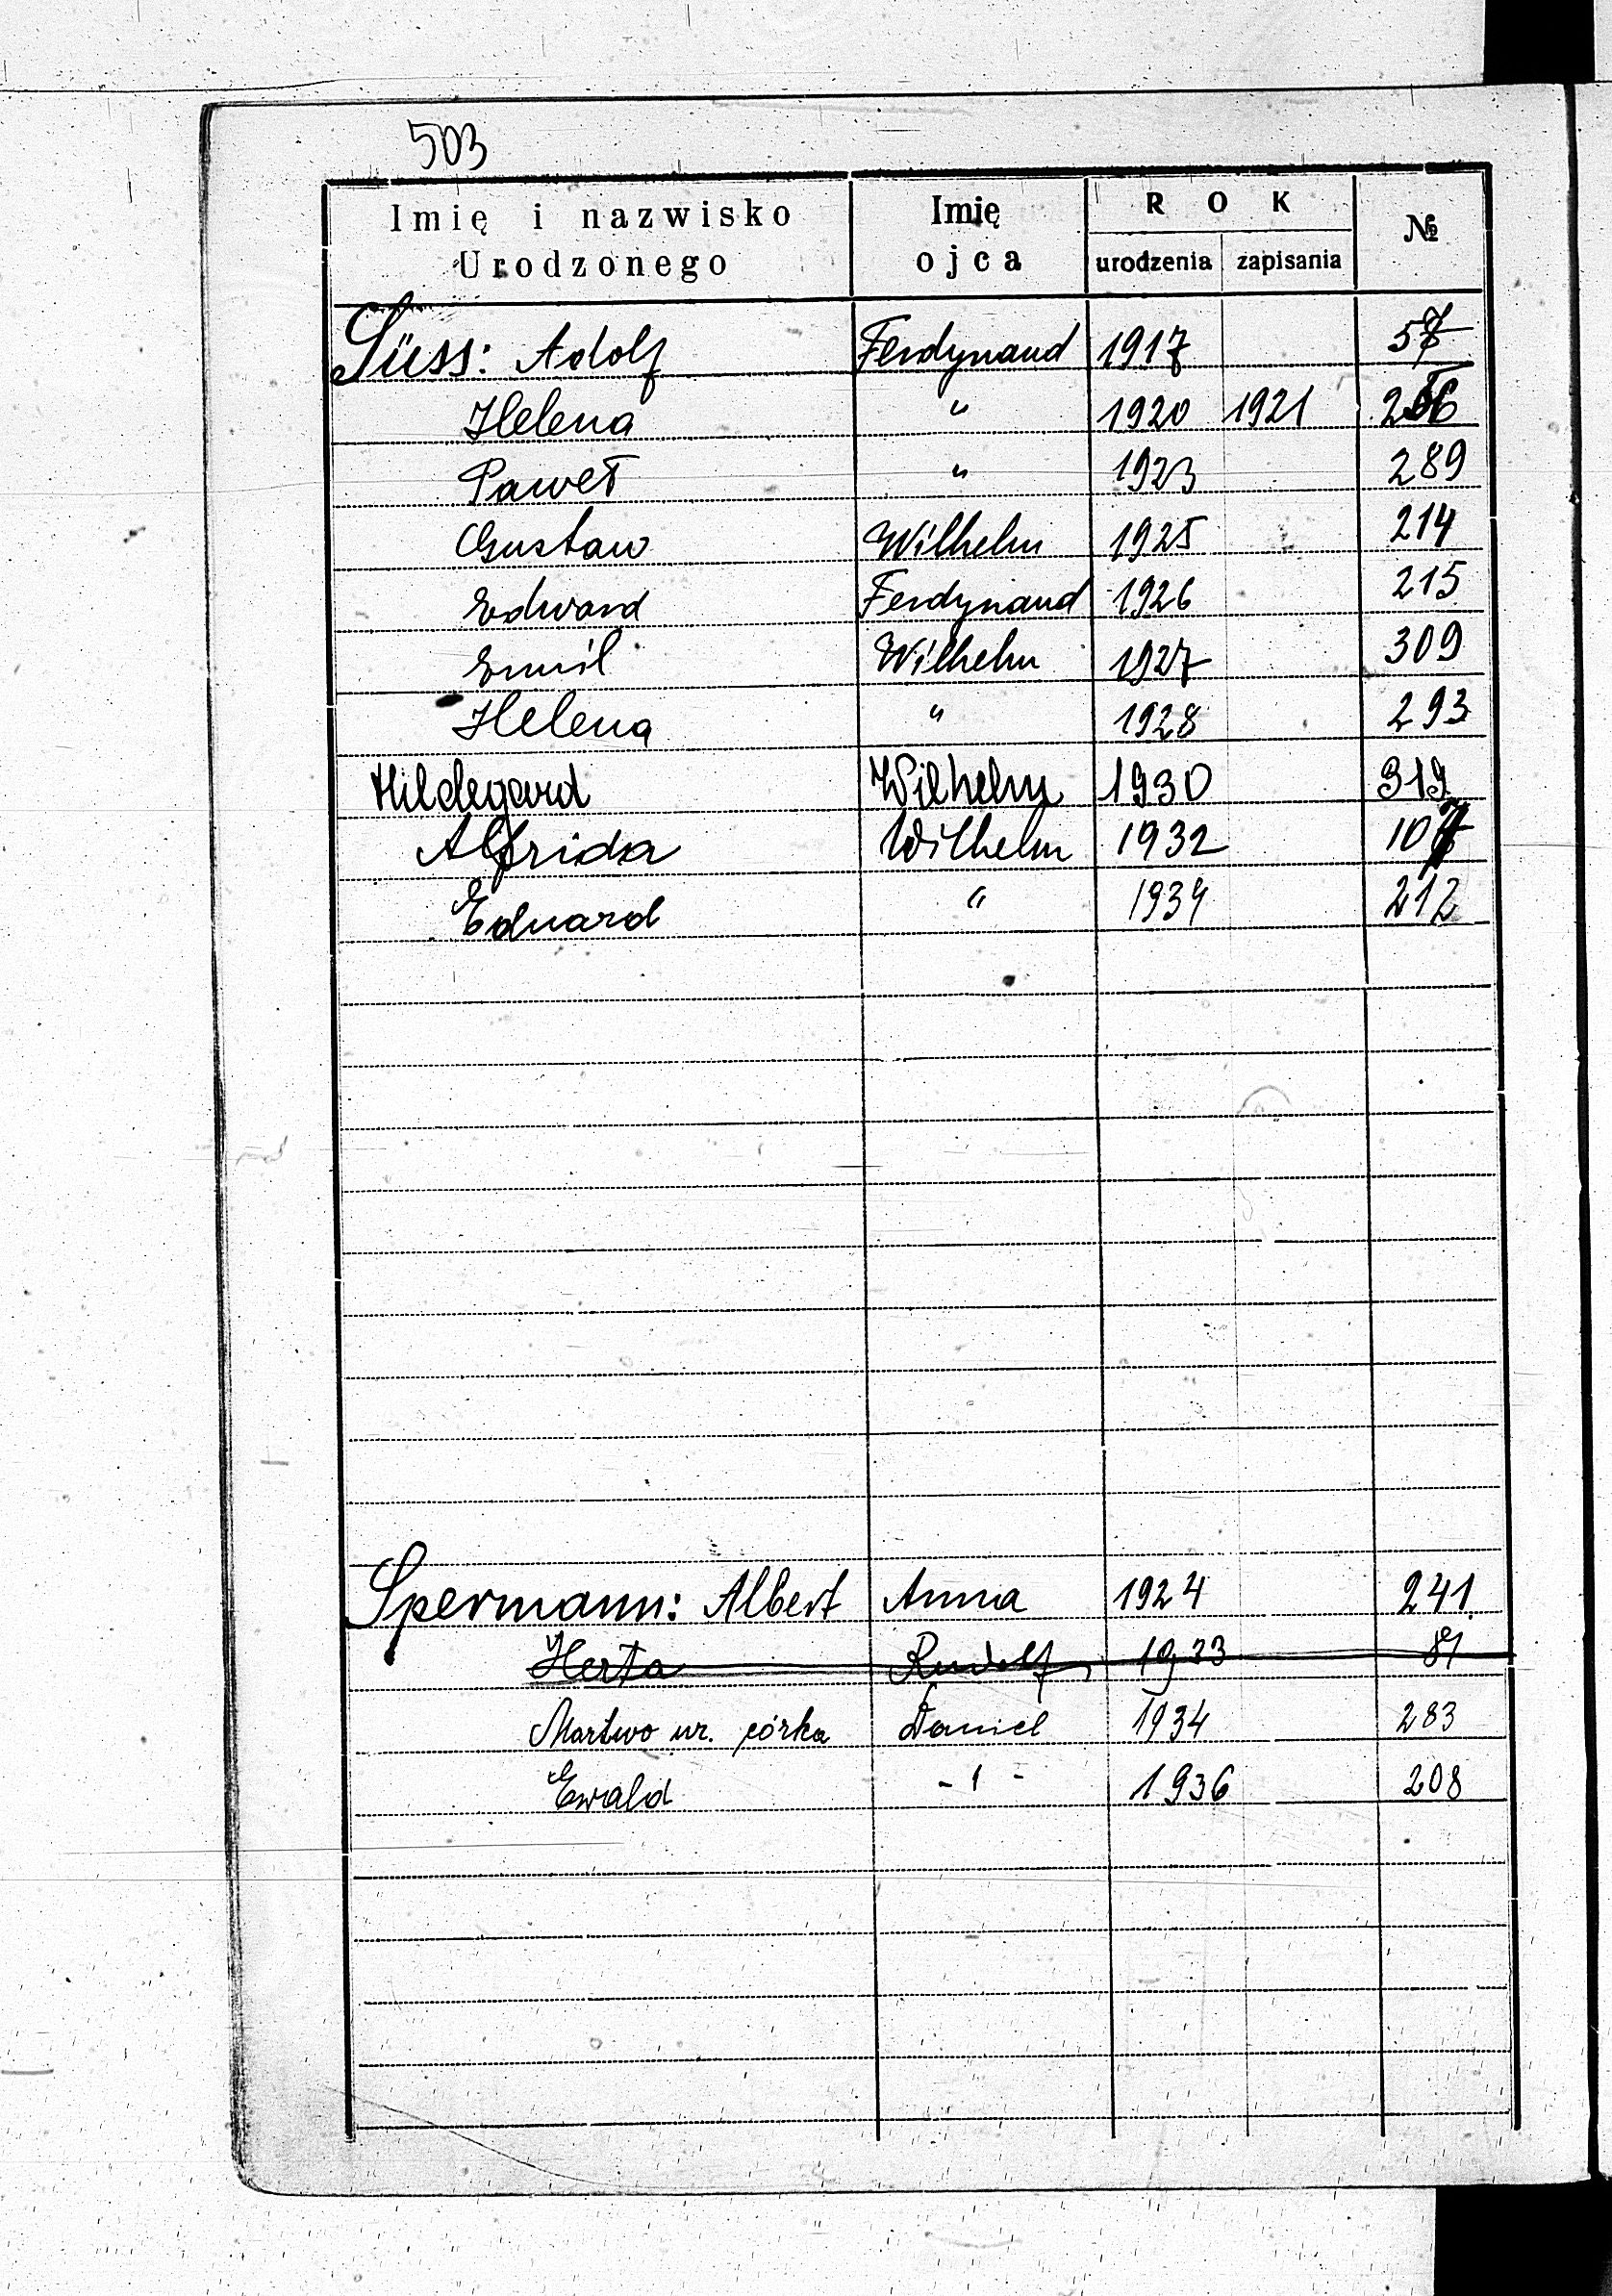 503
Imię i nazwisko Urodzonego Imię ojca ROK urodzenia zapisania №
Süss: Adolf Ferdynand 1917 57
Helena " 1920 1921
Paweł " 1923 289
Gustaw Wilhelm 1925 214
Edward Ferdynand 1926 215
Emil Wilhelm 1927 309
Helena " 1928 293
Hildegard Wilhelm 1930 319
Alfrida Wilhelm 1932
Eduard " 1934 212
Spermann: Albert Anna 1924 241
Herta Rudolf 1933 81
Martwo ur. córka Daniel 1934 283
Ewald -"- 1936 208